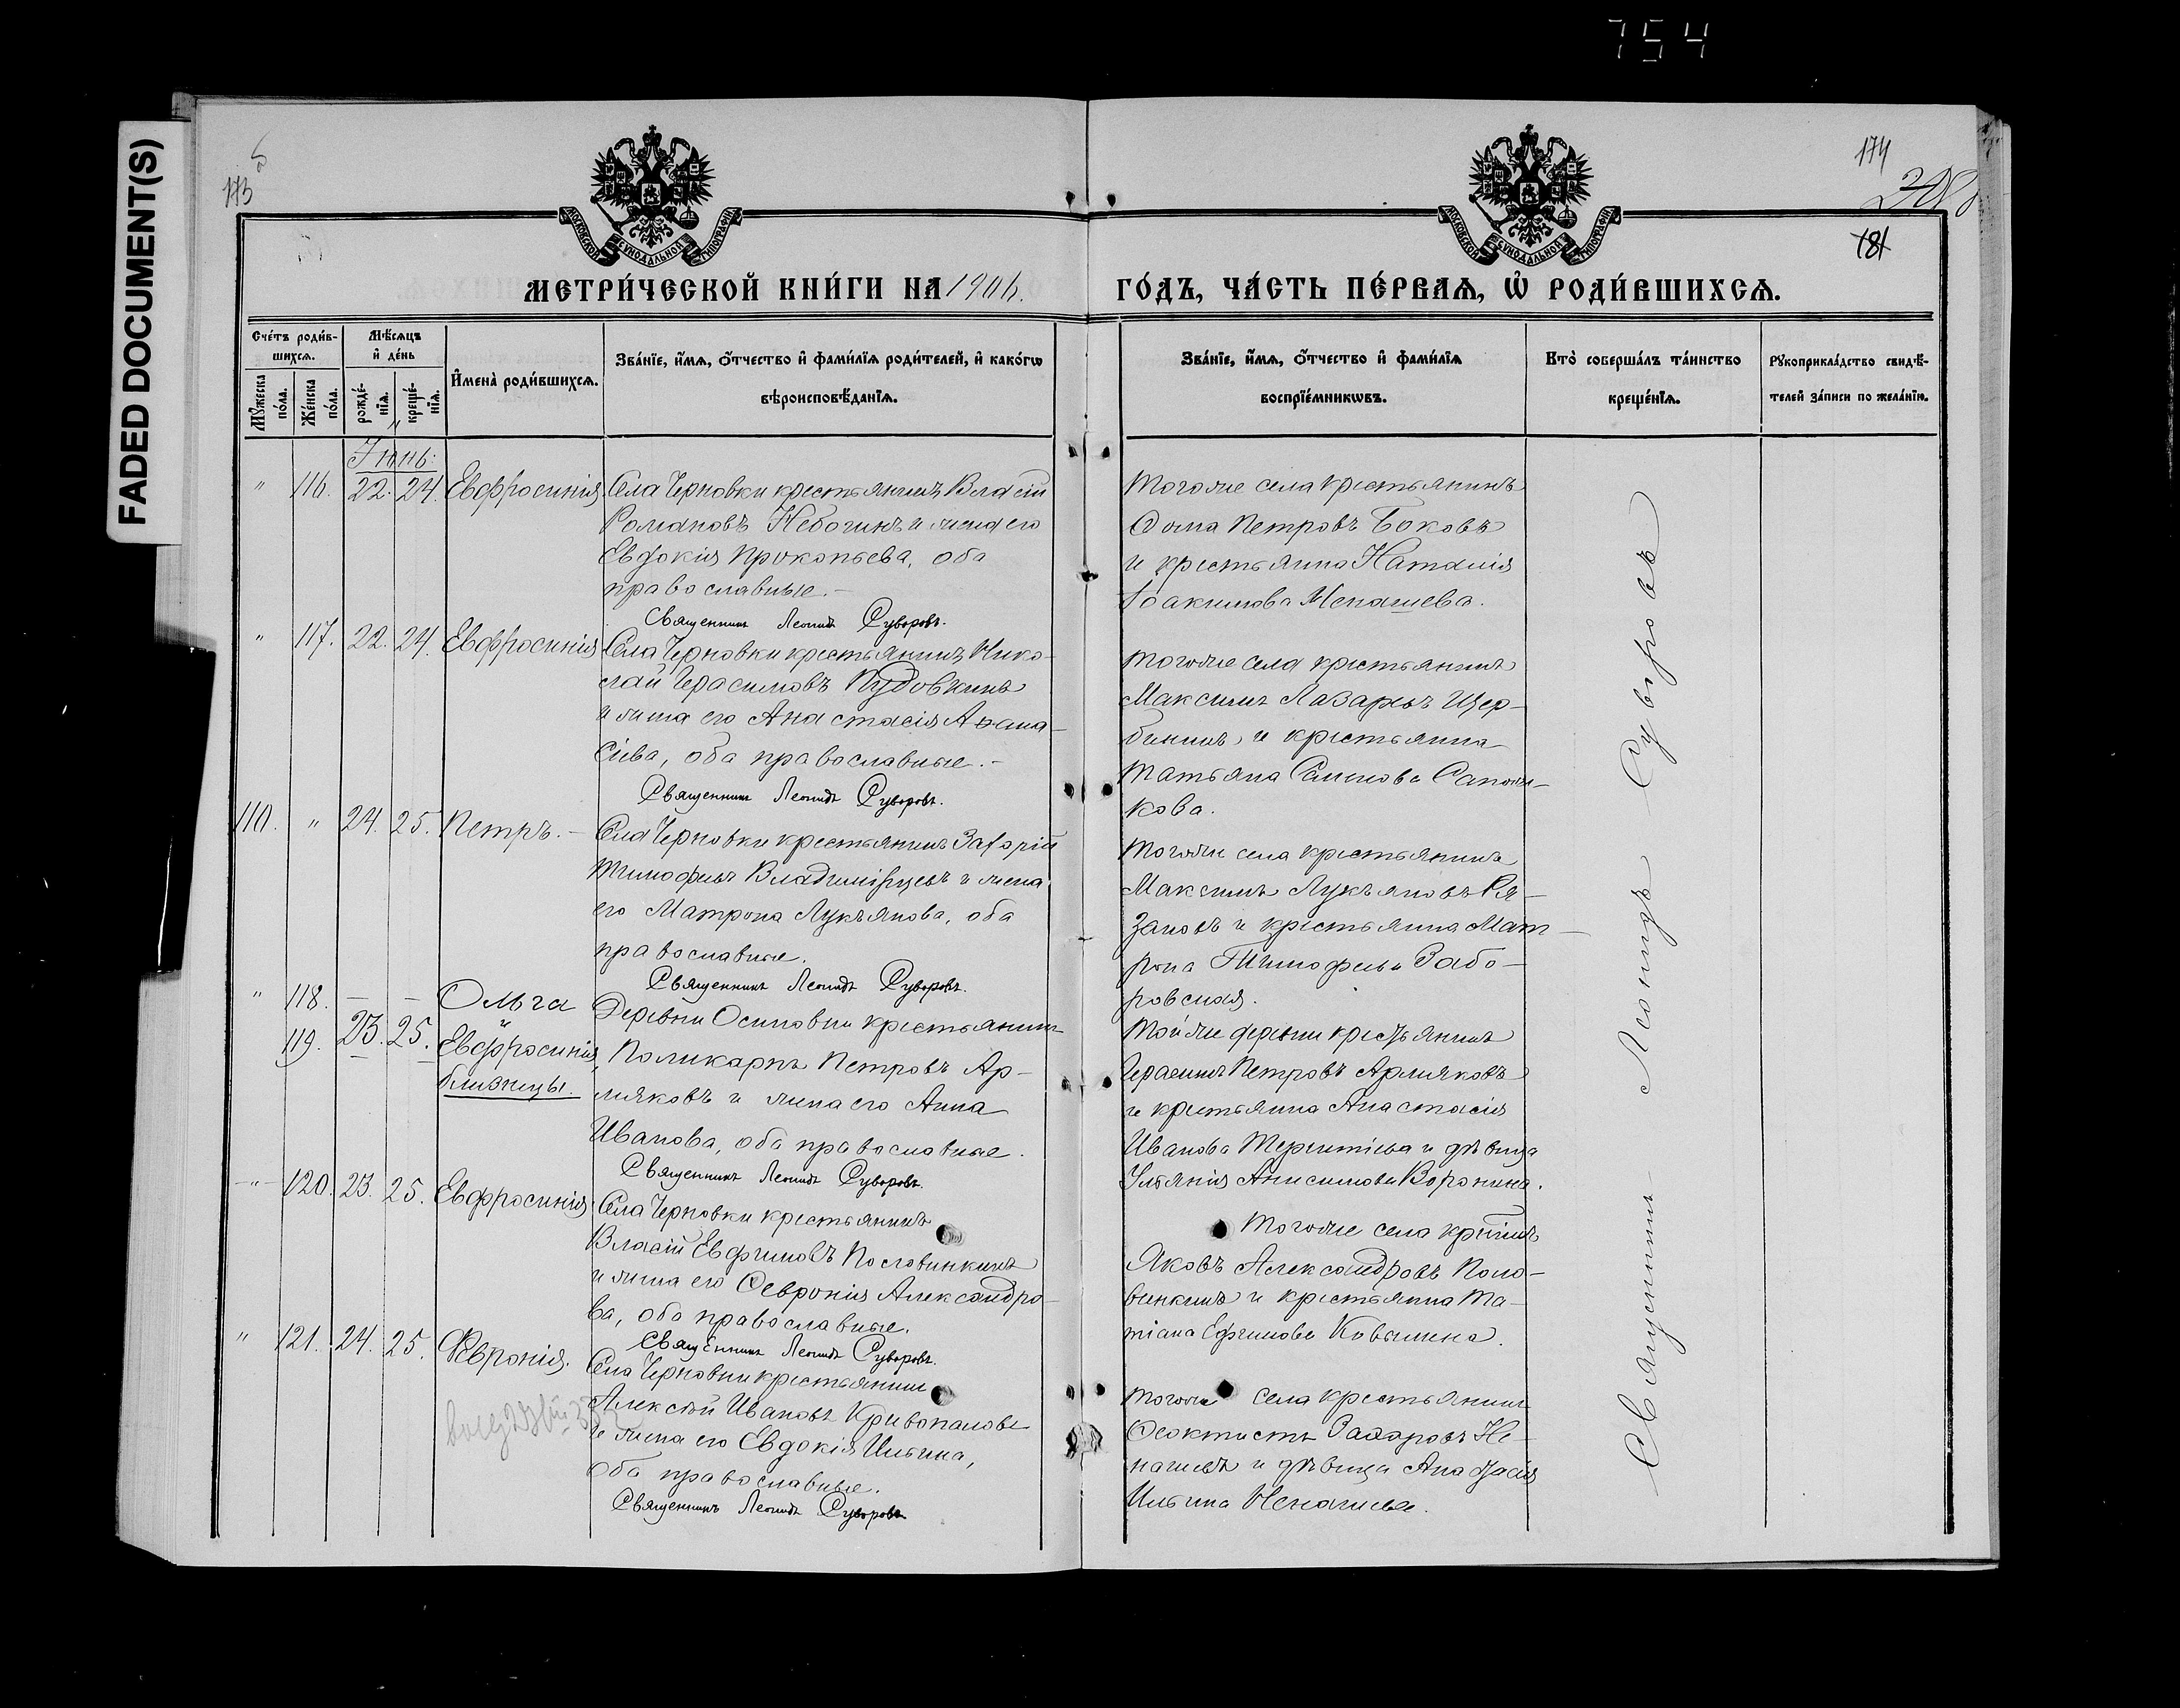 754
FADED DOCUMENT(S)
173
174
181
МОСКОВСКОЙ СѴНОДАЛЬНОЙ ТИПОГРАФІИ
МОСКОВСКОЙ СѴНОДАЛЬНОЙ ТИПОГРАФІИ
МЕТРИ́ЧЕСКОЙ КНИ́ГИ НА 1906.
ГО́ДЪ, ЧА́СТЬ ПЕ́РВАѦ, Ѡ҆ РОДИ́ВШИХСѦ.
Сче́тъ роди́в-
шихсѧ.
Мꙋ́жеска по́ла.
Же́нска по́ла.
Мѣ́сѧцъ
и҆ де́нь
рожде́-
нїѧ.
креще́-
нїѧ.
И҆мена̀ роди́вшихсѧ.
Зва́нїе, и҆́мѧ, ѻ҆́тчество и҆ фами́лїѧ роди́телей, и҆ како́гѡ
вѣроисповѣ́данїѧ.
Зва́нїе, и҆́мѧ, ѻ҆́тчество и҆ фами́лїѧ
воспрїе́мникѡвъ.
Кто̀ соверша́лъ та́инство
креще́нїѧ.
Рꙋкоприкла́дство свидѣ́-
телей за́писи по жела́нїю.
Іюнь:
" 116. 22. 24. Евфросинія
Села Черновки крестьянинъ Власій
Романовъ Небогинъ и жена его
Евдокія Прокопьева, оба
православные.-
Священникъ Леонидъ Суворовъ.
Тогоже села крестьянинъ
Ѳома Петровъ Боковъ
и крестьянка Наталія
Іоакимова Ненашева.
" 117. 22. 24. Евфросинія
Села Черновки крестьянинъ Нико-
лай Герасимовъ Пудовкинъ
и жена его Анастасія Аѳана-
сіева, оба православные.-
Священникъ Леонидъ Суворовъ.
Тогоже села крестьянинъ
Максимъ Лазаревъ Щер-
бининъ и крестьянка
Татьяна Симонова Сапож-
кова.
110. " 24. 25. Петръ.-
Села Черновки крестьянинъ Захарій
Тимофеевъ Владимірцевъ и жена
его Матрона Лукьянова, оба
православные.
Священникъ Леонидъ Суворовъ.
Тогоже села крестьянинъ
Максимъ Лукьяновъ Ря-
зановъ и крестьянка Мат-
рона Тимофеева Забо-
ровская.
" 118. Ольга
и
119. 23. 25. Евфросинія,
близнецы.
Деревни Осиновки крестьянинъ
Поликарпъ Петровъ Ар-
мяковъ и жена его Анна
Иванова, оба православные.
Священникъ Леонидъ Суворовъ.
Тойже деревни крестьянинъ
Герасимъ Петровъ Армяковъ
и крестьянка Анастасія
Иванова Терентіева и дѣвица
Ульянія Анисимова Воронина.
-"- 120. 23. 25. Евфросинія
Села Черновки крестьянинъ
Власій Евфимовъ Половинкинъ
и жена его Февронія Александро-
ва, оба православные.
Священникъ Леонидъ Суворовъ.
Тогоже села крест-инъ
Яковъ Александровъ Поло-
винкинъ и крестьянка Та-
тіана Ефимова Ковылина.
" 121. 24. 25. Февронія.
Села Черновки крестьянинъ
Алексѣй Ивановъ Кривопаловъ
и жена его Евдокія Ильина,
оба православные.
Священникъ Леонидъ Суворовъ
Тогоже села крестьянинъ
Ѳеоктистъ Захаровъ Не-
нашевъ и дѣвица Анастасія
Ильина Ненашева.
Священникъ Леонидъ Суворовъ